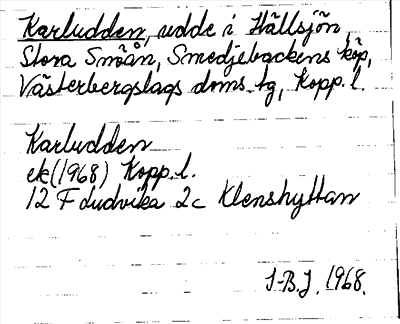 Karludden, udde i Hällsjön,
Stora Snöån, Smedjebackens köp,
Västerbergslags doms. tg, Kopp. l.
Karludden
ek (1968) Kopp. l.
12 F Ludvika 2c Klenshyttan
S-B.J. 1968.